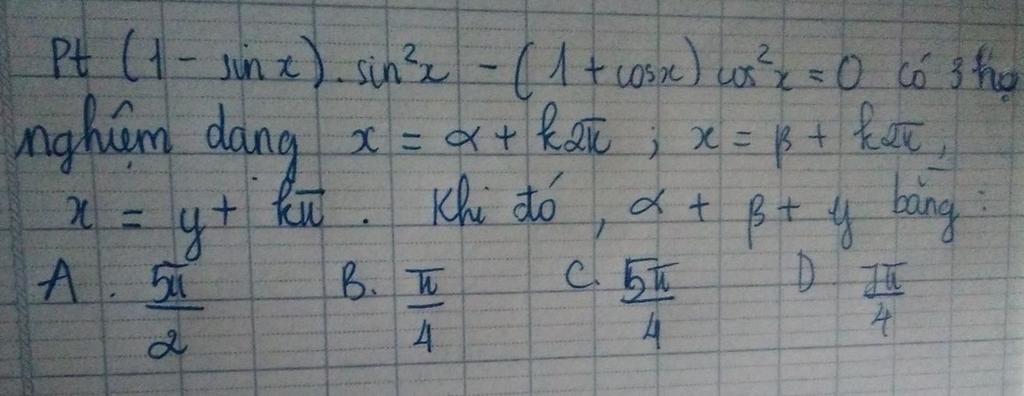 Pt (1 - sinx). sin²x - (1 + cosx) cos²x = 0 có 3 họ
nghiệm dạng x = α + k2π ; x = β + k2π,
x = y + kπ . Khi đó, α + β + y bằng :
A. 5π/2 B. π/4 C. 5π/4 D 7π/4